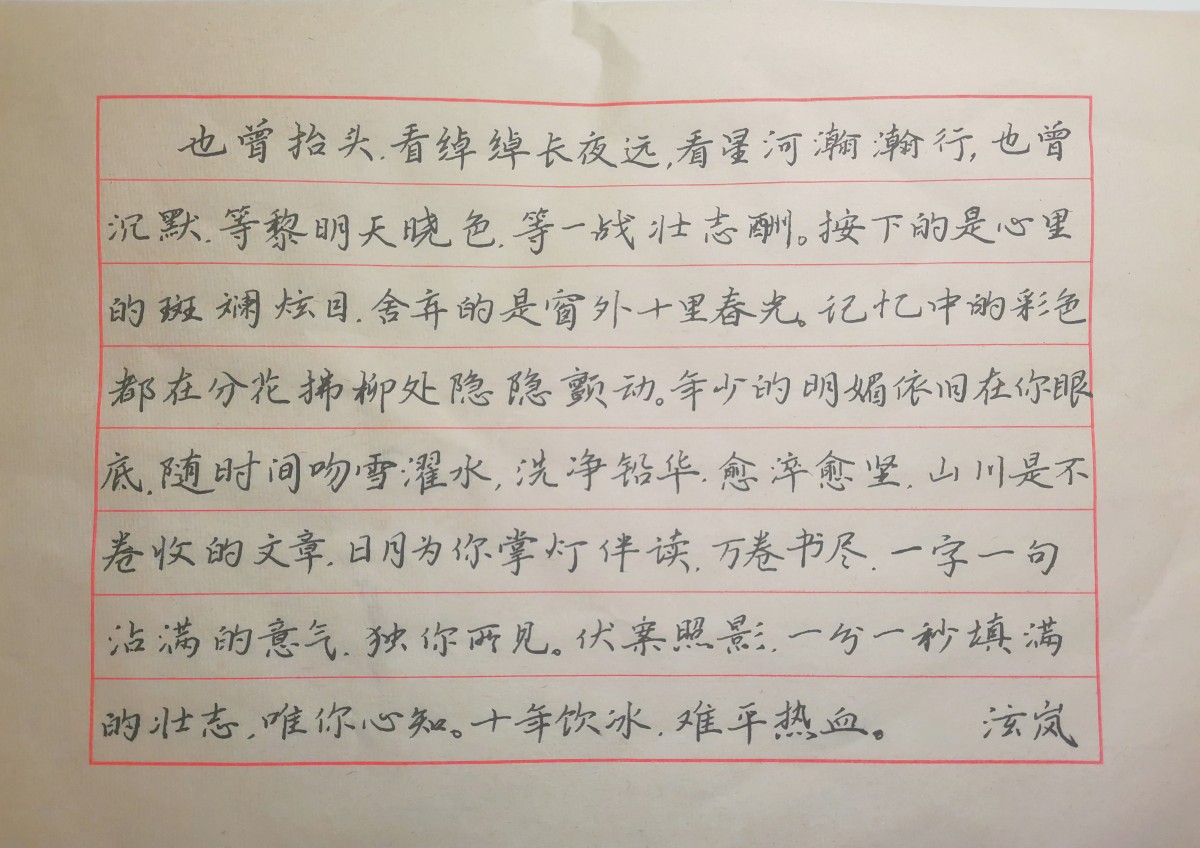 也曾抬头,看绰绰长夜远,看星河瀚瀚行,也曾
沉默,等黎明天晓色,等一战壮志酬。按下的是心里
的斑斓炫目,舍弃的是窗外十里春光。记忆中的彩色
都在分花拂柳处隐隐颤动。年少的明媚依旧在你眼
底,随时间吻雪濯水,洗净铅华,愈淬愈坚,山川是不
卷收的文章,日月为你掌灯伴读,万卷书尽,一字一句
沾满的意气,独你所见。伏案照影,一分一秒填满
的壮志,唯你心知。十年饮冰,难平热血。 泫岚